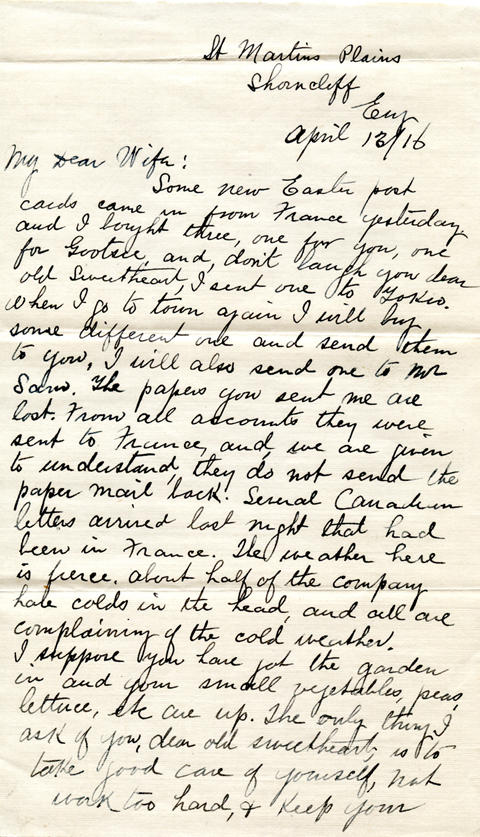 St Martins Plains
Shorncliff
Eng
April 13/16
My Dear Wife:
Some new Easter post
cards came in from France yesterday
and I bought three, one for you, one
for Gootsee, and, don't laugh you dear
old Sweetheart, I sent one to Yokio.
When I go to town again I will buy
some different one and send them
to you, I will also send one to Mr
Sam. The papers you sent me are
lost. From all accounts they were
sent to France, and, we are given
to understand, they do not send the
paper mail back. Several Canadian
letters arrived last night that had
been in France. The weather here
is fierce. About half of the company
have colds in the head, and all are
complaining of the cold weather.
I suppose you have got the garden
in and your small vegetables, peas,
lettuce, etc are up. The only thing I
ask of you, dear old sweetheart, is to
take good care of yourself, not
work too hard, & keep your